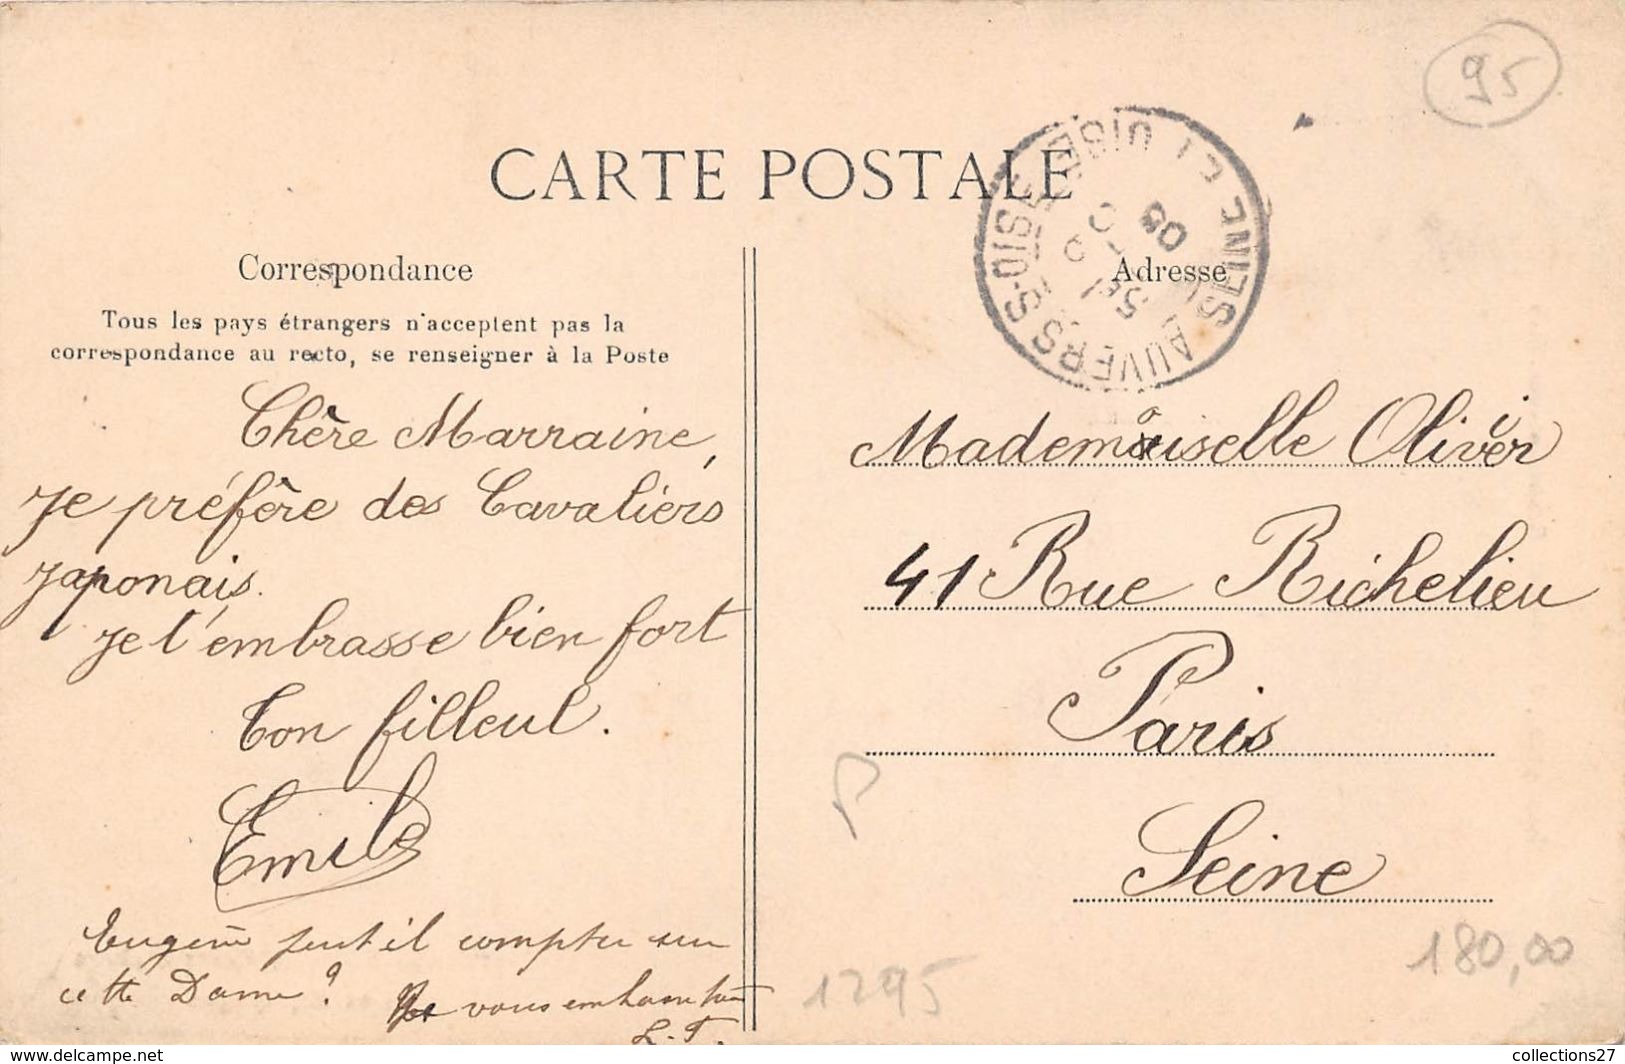 95
CARTE POSTALE
AUVERS-S-OISE
SEINE ET OISE
08
Correspondance
Tous les pays étrangers n'acceptent pas la
correspondance au recto, se renseigner à la Poste
Chère Marraine,
Je préfère des Cavaliers
Japonais.
Je t'embrasse bien fort
Ton filleul.
Emile
Eugène peut il compter sur
cette Dame?
vous embrasse
L. T.
Adresse
Mademoiselle Olivier
41 Rue Richelieu
Paris
Seine
P
1295
180,00
www.delcampe.net
collections27